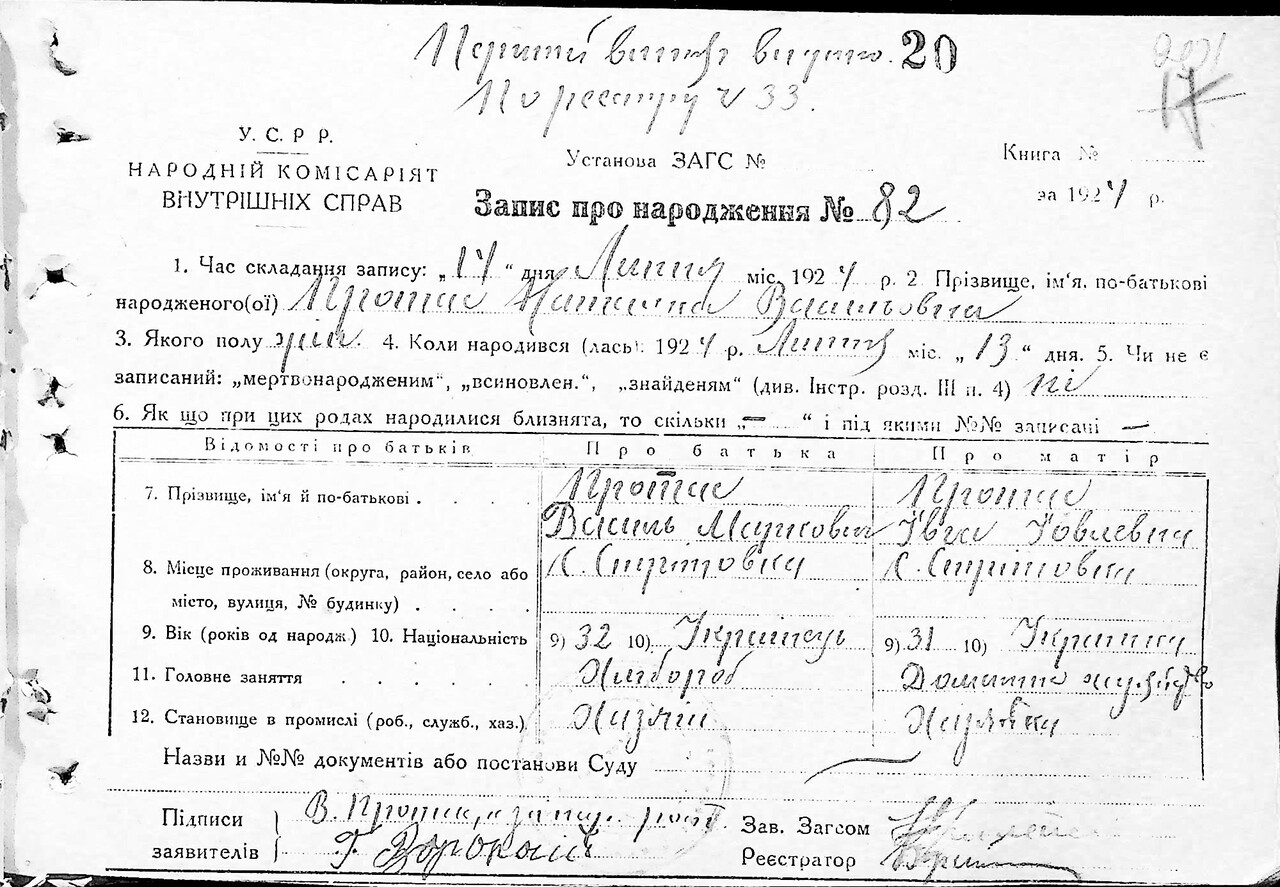 Перший витяг видано. 20
По реестру ч 33.
17
У. С. Р Р.
НАРОДНІЙ КОМІСАРІЯТ
ВНУТРІШНІХ СПРАВ
Установа ЗАГС №
Книга №
за 1924 р.
Запис про народження № 82
1. Час складання запису: „14“ дня Липня міс, 1924 р. 2 Прізвище, ім‘я. по-батькові
народженого(ої) Протас Василівна
3. Якого полу жін 4. Коли народився (лась): 1924 р. Липня міс. „13“ дня. 5. Чи не є
записаний: „мертвонародженим“, „всиновлен.“, „знайденям“ (див. Інстр. розд. III п. 4) ні
6. Як що при цих родах народилися близнята, то скільки „—“ і під якими №№ записані —
Відомості про батьків Про батька Про матір
7. Прізвище, ім‘я й по-батькові . . . . Протас Протас
Василь Маркович Ївга Йовлевна
8. Місце проживання (округа, район, село або Х. Х.
місто, вулиця, № будинку) . . . .
9. Вік (років од народж.) 10. Національність 9) 32 10) Українець 9) 31 10) Українка
11. Головне заняття . . . . . Хлібороб Домашнє
12. Становище в промислі (роб., служб., хаз.) Хазяїн Хазяйка
Назви и №№ документів або постанови Суду
Підписи В. Протас,
заявителів Г.
Зав. Загсом
Реєстратор